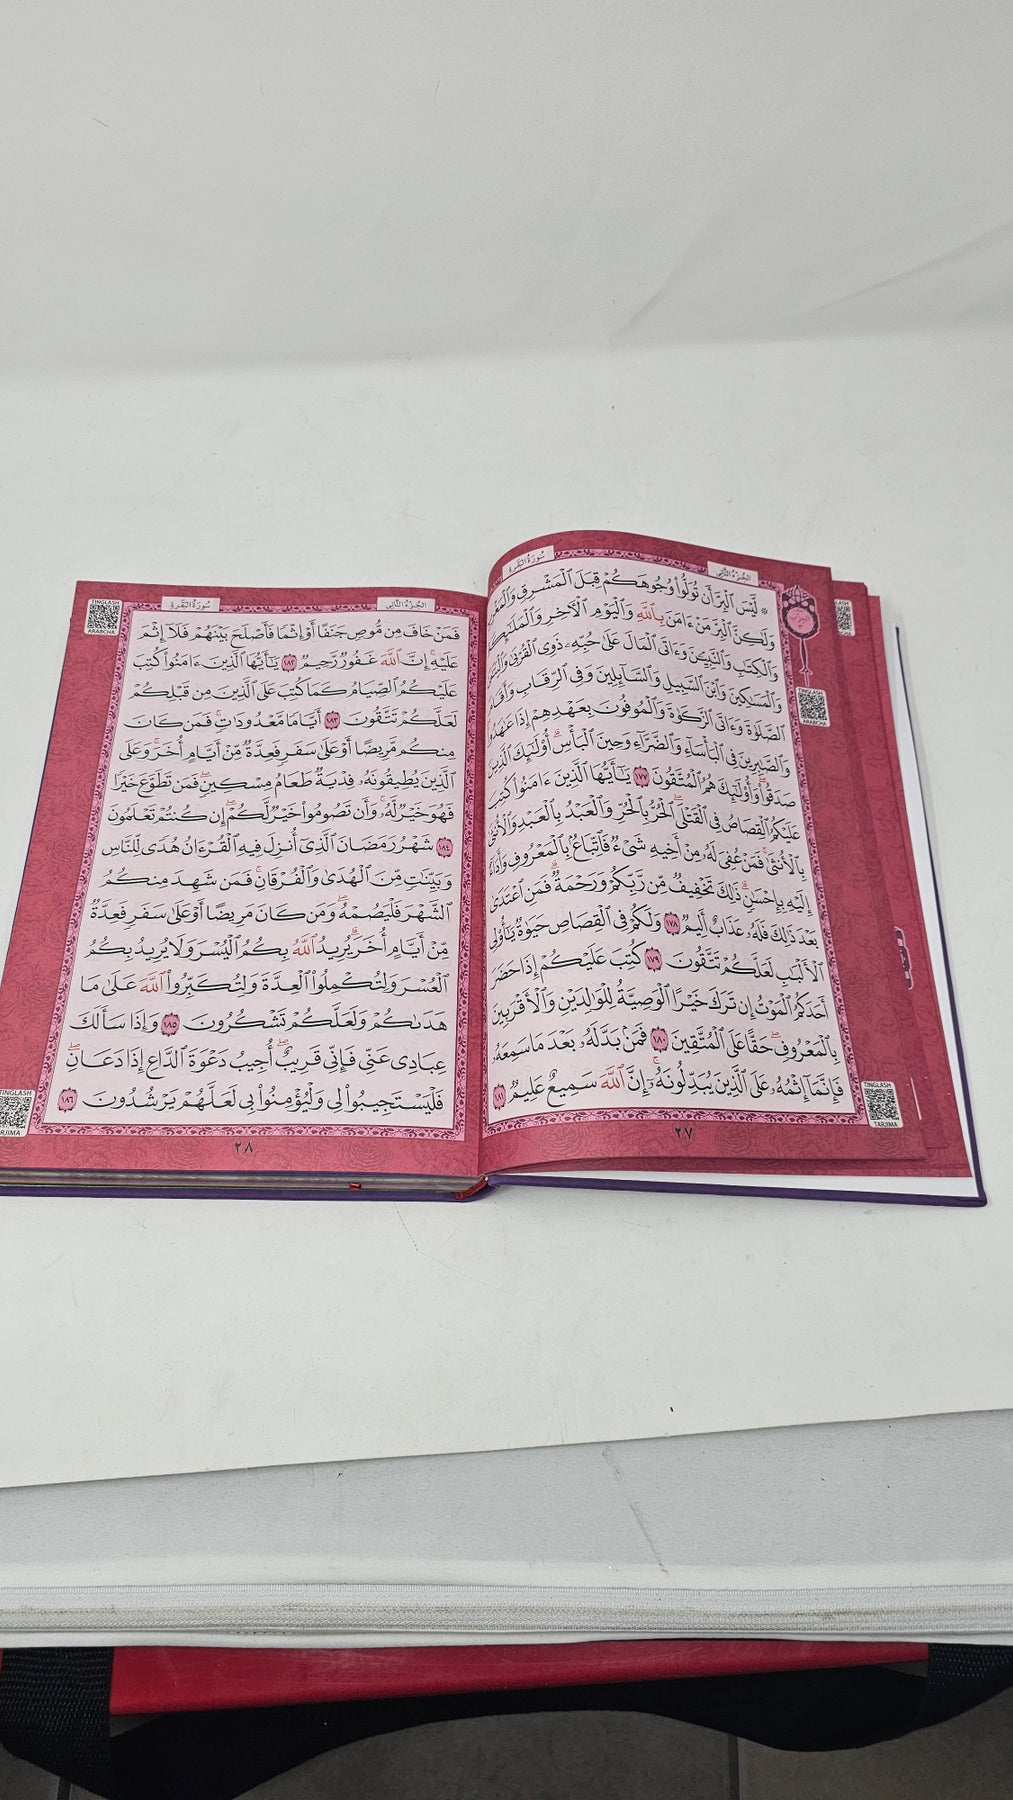 سُورَةُ البَقَرَةِ
الجُزءُ الثَّانِي
۞ لَّيۡسَ ٱلۡبِرَّ أَن تُوَلُّواْ وُجُوهَكُمۡ قِبَلَ ٱلۡمَشۡرِقِ
وَلَٰكِنَّ ٱلۡبِرَّ مَنۡ ءَامَنَ بِٱللَّهِ وَٱلۡيَوۡمِ ٱلۡأٓخِرِ وَٱلۡمَلَٰٓئِكَةِ
وَٱلۡكِتَٰبِ وَٱلنَّبِيِّـۧنَ وَءَاتَى ٱلۡمَالَ عَلَىٰ حُبِّهِۦ ذَوِي ٱلۡقُرۡبَىٰ
وَٱلۡمَسَٰكِينَ وَٱبۡنَ ٱلسَّبِيلِ وَٱلسَّآئِلِينَ وَفِي ٱلرِّقَابِ وَأَقَامَ
ٱلصَّلَوٰةَ وَءَاتَى ٱلزَّكَوٰةَ وَٱلۡمُوفُونَ بِعَهۡدِهِمۡ إِذَا عَٰهَدُواْۖ
وَٱلصَّٰبِرِينَ فِي ٱلۡبَأۡسَآءِ وَٱلضَّرَّآءِ وَحِينَ ٱلۡبَأۡسِۗ أُوْلَٰٓئِكَ ٱلَّذِينَ
صَدَقُواْۖ وَأُوْلَٰٓئِكَ هُمُ ٱلۡمُتَّقُونَ ١٧٧ يَٰٓأَيُّهَا ٱلَّذِينَ ءَامَنُواْ كُتِبَ
عَلَيۡكُمُ ٱلۡقِصَاصُ فِي ٱلۡقَتۡلَىۖ ٱلۡحُرُّ بِٱلۡحُرِّ وَٱلۡعَبۡدُ بِٱلۡعَبۡدِ وَٱلۡأُنثَىٰ
بِٱلۡأُنثَىٰۚ فَمَنۡ عُفِيَ لَهُۥ مِنۡ أَخِيهِ شَيۡءٞ فَٱتِّبَاعُۢ بِٱلۡمَعۡرُوفِ وَأَدَآءٌ
إِلَيۡهِ بِإِحۡسَٰنٖۗ ذَٰلِكَ تَخۡفِيفٞ مِّن رَّبِّكُمۡ وَرَحۡمَةٞۗ فَمَنِ ٱعۡتَدَىٰ
بَعۡدَ ذَٰلِكَ فَلَهُۥ عَذَابٌ أَلِيمٞ ١٧٨ وَلَكُمۡ فِي ٱلۡقِصَاصِ حَيَوٰةٞ يَٰٓأُوْلِي
ٱلۡأَلۡبَٰبِ لَعَلَّكُمۡ تَتَّقُونَ ١٧٩ كُتِبَ عَلَيۡكُمۡ إِذَا حَضَرَ
أَحَدَكُمُ ٱلۡمَوۡتُ إِن تَرَكَ خَيۡرًا ٱلۡوَصِيَّةُ لِلۡوَٰلِدَيۡنِ وَٱلۡأَقۡرَبِينَ
بِٱلۡمَعۡرُوفِۖ حَقًّا عَلَى ٱلۡمُتَّقِينَ ١٨٠ فَمَنۢ بَدَّلَهُۥ بَعۡدَ مَا سَمِعَهُۥ
فَإِنَّمَآ إِثۡمُهُۥ عَلَى ٱلَّذِينَ يُبَدِّلُونَهُۥٓۚ إِنَّ ٱللَّهَ سَمِيعٌ عَلِيمٞ ١٨١
TINGLASH
ARABCHA
TINGLASH
TARJIMA
٢٧
سُورَةُ البَقَرَةِ
الجُزءُ الثَّانِي
TINGLASH
ARABCHA
فَمَنۡ خَافَ مِن مُّوصٖ جَنَفًا أَوۡ إِثۡمٗا فَأَصۡلَحَ بَيۡنَهُمۡ فَلَآ إِثۡمَ
عَلَيۡهِۚ إِنَّ ٱللَّهَ غَفُورٞ رَّحِيمٞ ١٨٢ يَٰٓأَيُّهَا ٱلَّذِينَ ءَامَنُواْ كُتِبَ
عَلَيۡكُمُ ٱلصِّيَامُ كَمَا كُتِبَ عَلَى ٱلَّذِينَ مِن قَبۡلِكُمۡ
لَعَلَّكُمۡ تَتَّقُونَ ١٨٣ أَيَّامٗا مَّعۡدُودَٰتٖۚ فَمَن كَانَ
مِنكُم مَّرِيضًا أَوۡ عَلَىٰ سَفَرٖ فَعِدَّةٞ مِّنۡ أَيَّامٍ أُخَرَۚ وَعَلَى
ٱلَّذِينَ يُطِيقُونَهُۥ فِدۡيَةٞ طَعَامُ مِسۡكِينٖۖ فَمَن تَطَوَّعَ خَيۡرٗا
فَهُوَ خَيۡرٞ لَّهُۥۚ وَأَن تَصُومُواْ خَيۡرٞ لَّكُمۡ إِن كُنتُمۡ تَعۡلَمُونَ
١٨٤ شَهۡرُ رَمَضَانَ ٱلَّذِيٓ أُنزِلَ فِيهِ ٱلۡقُرۡءَانُ هُدٗى لِّلنَّاسِ
وَبَيِّنَٰتٖ مِّنَ ٱلۡهُدَىٰ وَٱلۡفُرۡقَانِۚ فَمَن شَهِدَ مِنكُمُ
ٱلشَّهۡرَ فَلۡيَصُمۡهُۖ وَمَن كَانَ مَرِيضًا أَوۡ عَلَىٰ سَفَرٖ فَعِدَّةٞ
مِّنۡ أَيَّامٍ أُخَرَۗ يُرِيدُ ٱللَّهُ بِكُمُ ٱلۡيُسۡرَ وَلَا يُرِيدُ بِكُمُ
ٱلۡعُسۡرَ وَلِتُكۡمِلُواْ ٱلۡعِدَّةَ وَلِتُكَبِّرُواْ ٱللَّهَ عَلَىٰ مَا
هَدَىٰكُمۡ وَلَعَلَّكُمۡ تَشۡكُرُونَ ١٨٥ وَإِذَا سَأَلَكَ
عِبَادِي عَنِّي فَإِنِّي قَرِيبٌۖ أُجِيبُ دَعۡوَةَ ٱلدَّاعِ إِذَا دَعَانِۖ
فَلۡيَسۡتَجِيبُواْ لِي وَلۡيُؤۡمِنُواْ بِي لَعَلَّهُمۡ يَرۡشُدُونَ ١٨٦
TINGLASH
TARJIMA
٢٨